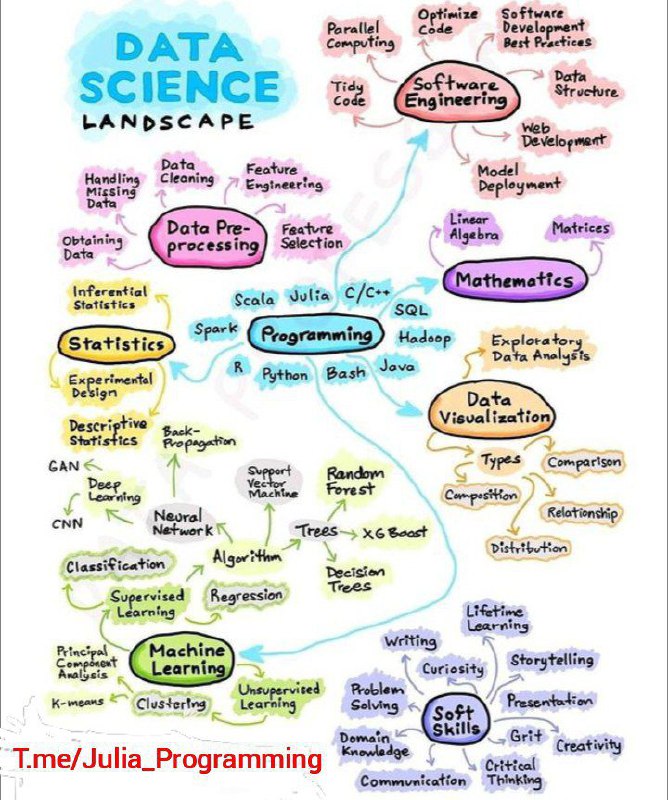 DATA
SCIENCE
LANDSCAPE
Parallel
Computing
Optimize
Code
Software
Development
Best Practices
Tidy
Code
Software
Engineering
Data
Structure
Web
Development
Model
Deployment
Handling
Missing
Data
Data
Cleaning
Feature
Engineering
Obtaining
Data
Data Pre-
processing
Feature
Selection
Linear
Algebra
Matrices
Mathematics
Inferential
Statistics
Statistics
Experimental
Design
Descriptive
Statistics
Scala
Julia
C/C++
SQL
Spark
Programming
Hadoop
R
Python
Bash
Java
Exploratory
Data Analysis
Data
Visualization
Types
Comparison
Composition
Relationship
Distribution
Back-
Propagation
GAN
Deep
Learning
CNN
Neural
Network
Support
Vector
Machine
Random
Forest
Algorithm
Trees
XG Boost
Decision
Trees
Classification
Supervised
Learning
Regression
Machine
Learning
Principal
Component
Analysis
K-means
Clustering
Unsupervised
Learning
Lifetime
Learning
Writing
Curiosity
Storytelling
Problem
Solving
Soft
Skills
Presentation
Domain
Knowledge
Grit
Creativity
Communication
Critical
Thinking
T.me/Julia_Programming